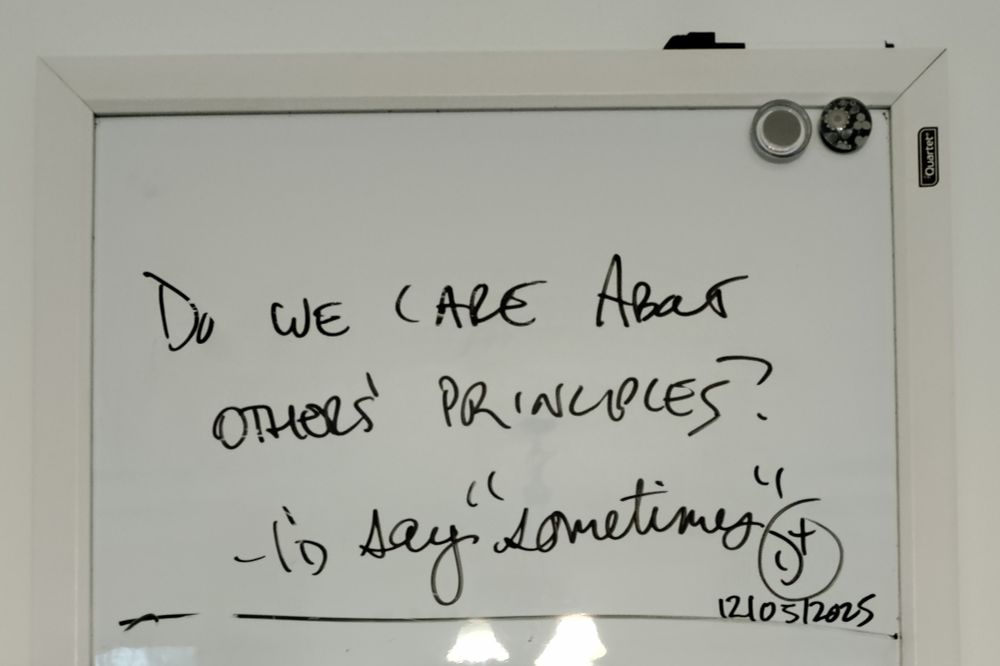 Quartet
DO WE CARE ABOUT
OTHERS' PRINCIPLES?
- I'D say "sometimes"
12/05/2025